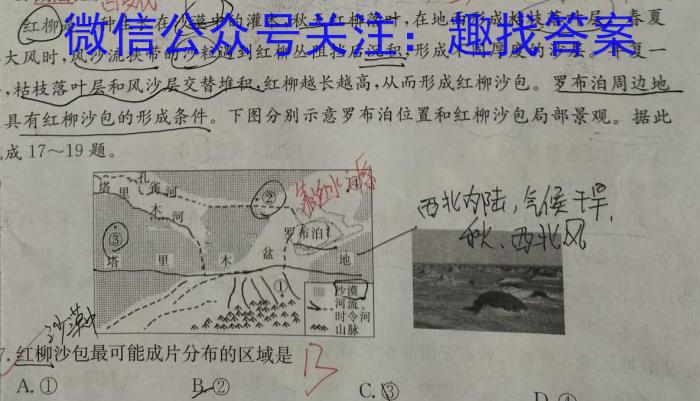 微信公众号关注：趣找答案
大风时，风沙流携带的沙粒遇到红柳丛阻挡后沉积，形成
枯枝落叶层和风沙层交替堆积，红柳越长越高，从而形成红柳沙包。罗布泊周边地
具有红柳沙包的形成条件。下图分别示意罗布泊位置和红柳沙包局部景观。据此
成17～19题。
塔里木河
孔雀河
②
③
罗布泊
塔里木盆地
①
沙漠
河流、
时令河
山脉
西北内陆，气候干旱，
秋、西北风
沙漠
7.红柳沙包最可能成片分布的区域是
B
A.①
B.②
C.③
D.④